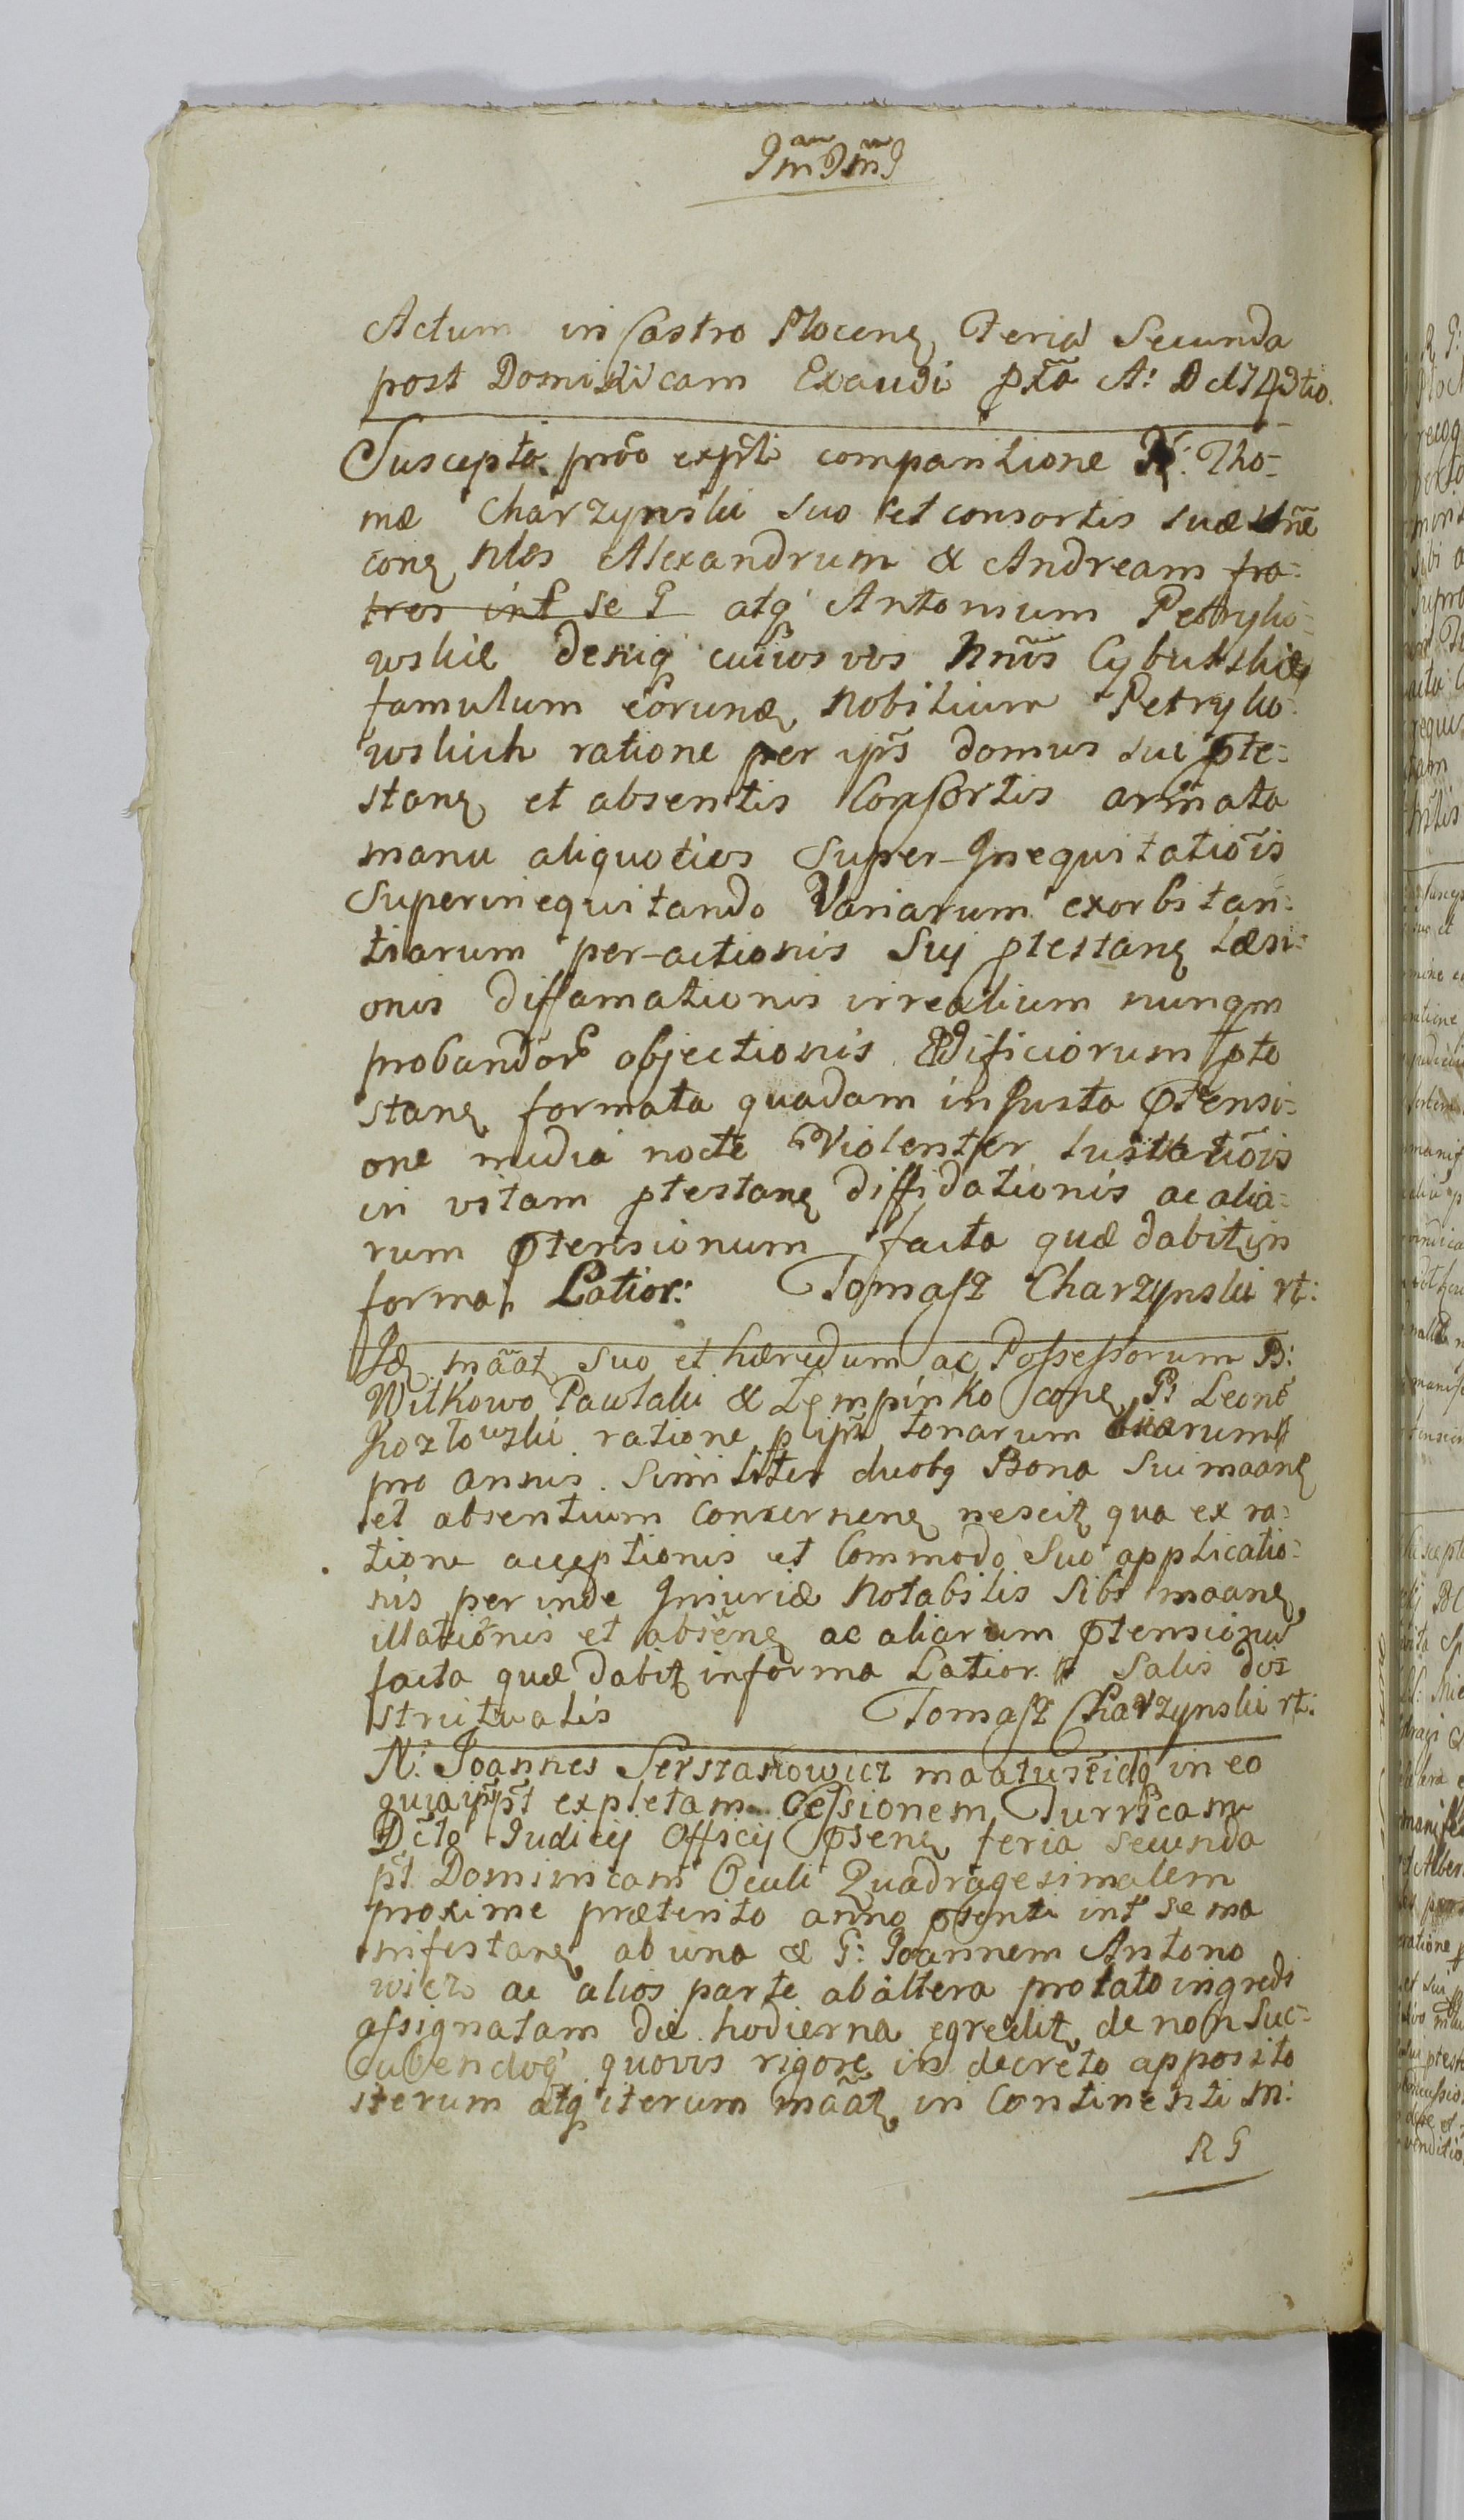 Actum in Castro Plocenę Feria Secunda
post Dominicam Exaudi pxã A: D
Suscepta prõo exp̃sti comparitione Tho-
mæ Charzynski suo et consortis suæ nñe
conę Nles Alexandrum & Andream fra-
tres int se atq Antonium Petryko-
wskie deniq cujusvis nñis Cybulskię
famulum eorundę Nobilium Petryko-
wskich ratione per ip̃s domus sui p̱te-
stanę et absentis Consortis armata
manu aliquoties Super-Inequitatiõis
Superinequitando Variarum exorbitan-
tiarum per-actionis Suj p̱testanę læsi-
onis diffamationis irrealium nunqm
probandor objectionis Ædificiorum p̱te
stanę formata quadam injusta p̱tensi-
one media nocte Violenter lustratiõis
in vitam p̱testanę diffidationis ac alia-
rum p̱tensionum facta quæ dabit in
forma Latior: Tomasz Charzynski rt:
Idę mãatʒ suo et hæredum ac Possessorum B:
Witkowo Pawlaki & Lempinko conę G: Leonẽ
Kozłowski ratione p ip̃m tonarum duarum
pro annis similiter duobʒ Bona sui maanę
et absentium concernenę nescitʒ qua ex ra-
tione acceptionis et Commodo Suo applicatio-
nis per inde Injuriæ Notabilis Sibi maanę
illationis et absenę ac aliarum p̱tensionũ
facta quæ dabitʒ in forma Latior. Salis
Tomasz Charzynski rt:
N: Joannes Serszanowicz maatus in eo
quia ip̃e p̃t expletam Cessionem Turricam
Dc̃to Judicij Officij p̱senę feria secunda
p̃t Dominicam Oculi Quadragesimalem
proxime præterito anno p̱senti int se ma
nifestanę ab una & G: Joannem Antono
wicz ac alios parte ab altera prolato ingredi
assignatam die hodierna egredit de non suc-
cubendoq quovis rigore in decreto apposito
iterum atq iterum mãatʒ in Continenti M:
RG